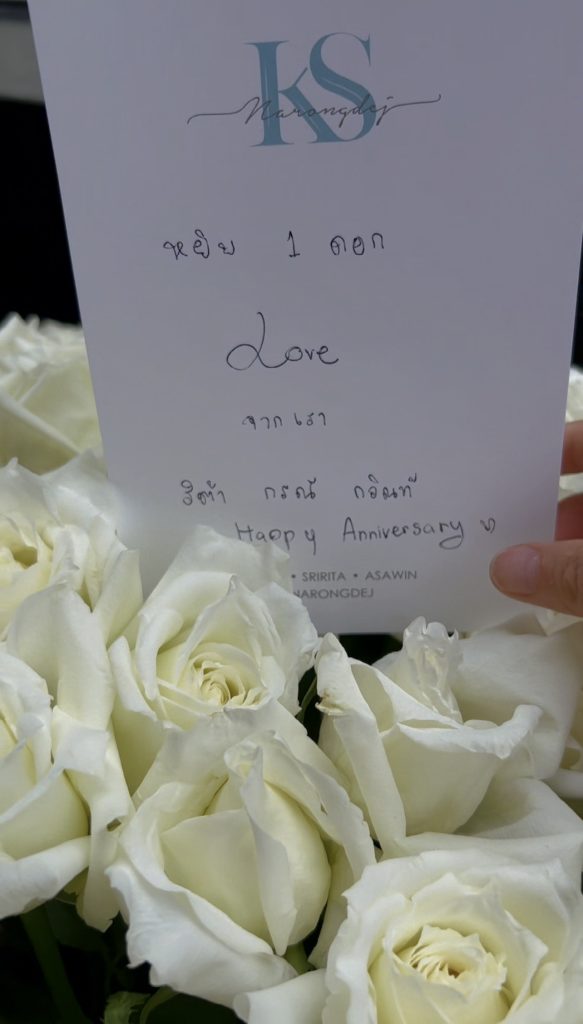 KS
Narongdej
หยิบ 1 ดอก
Love
จาก เรา
ริต้า กรณ์ กวินท์
Happy Anniversary
• SRIRITA • ASAWIN
NARONGDEJ